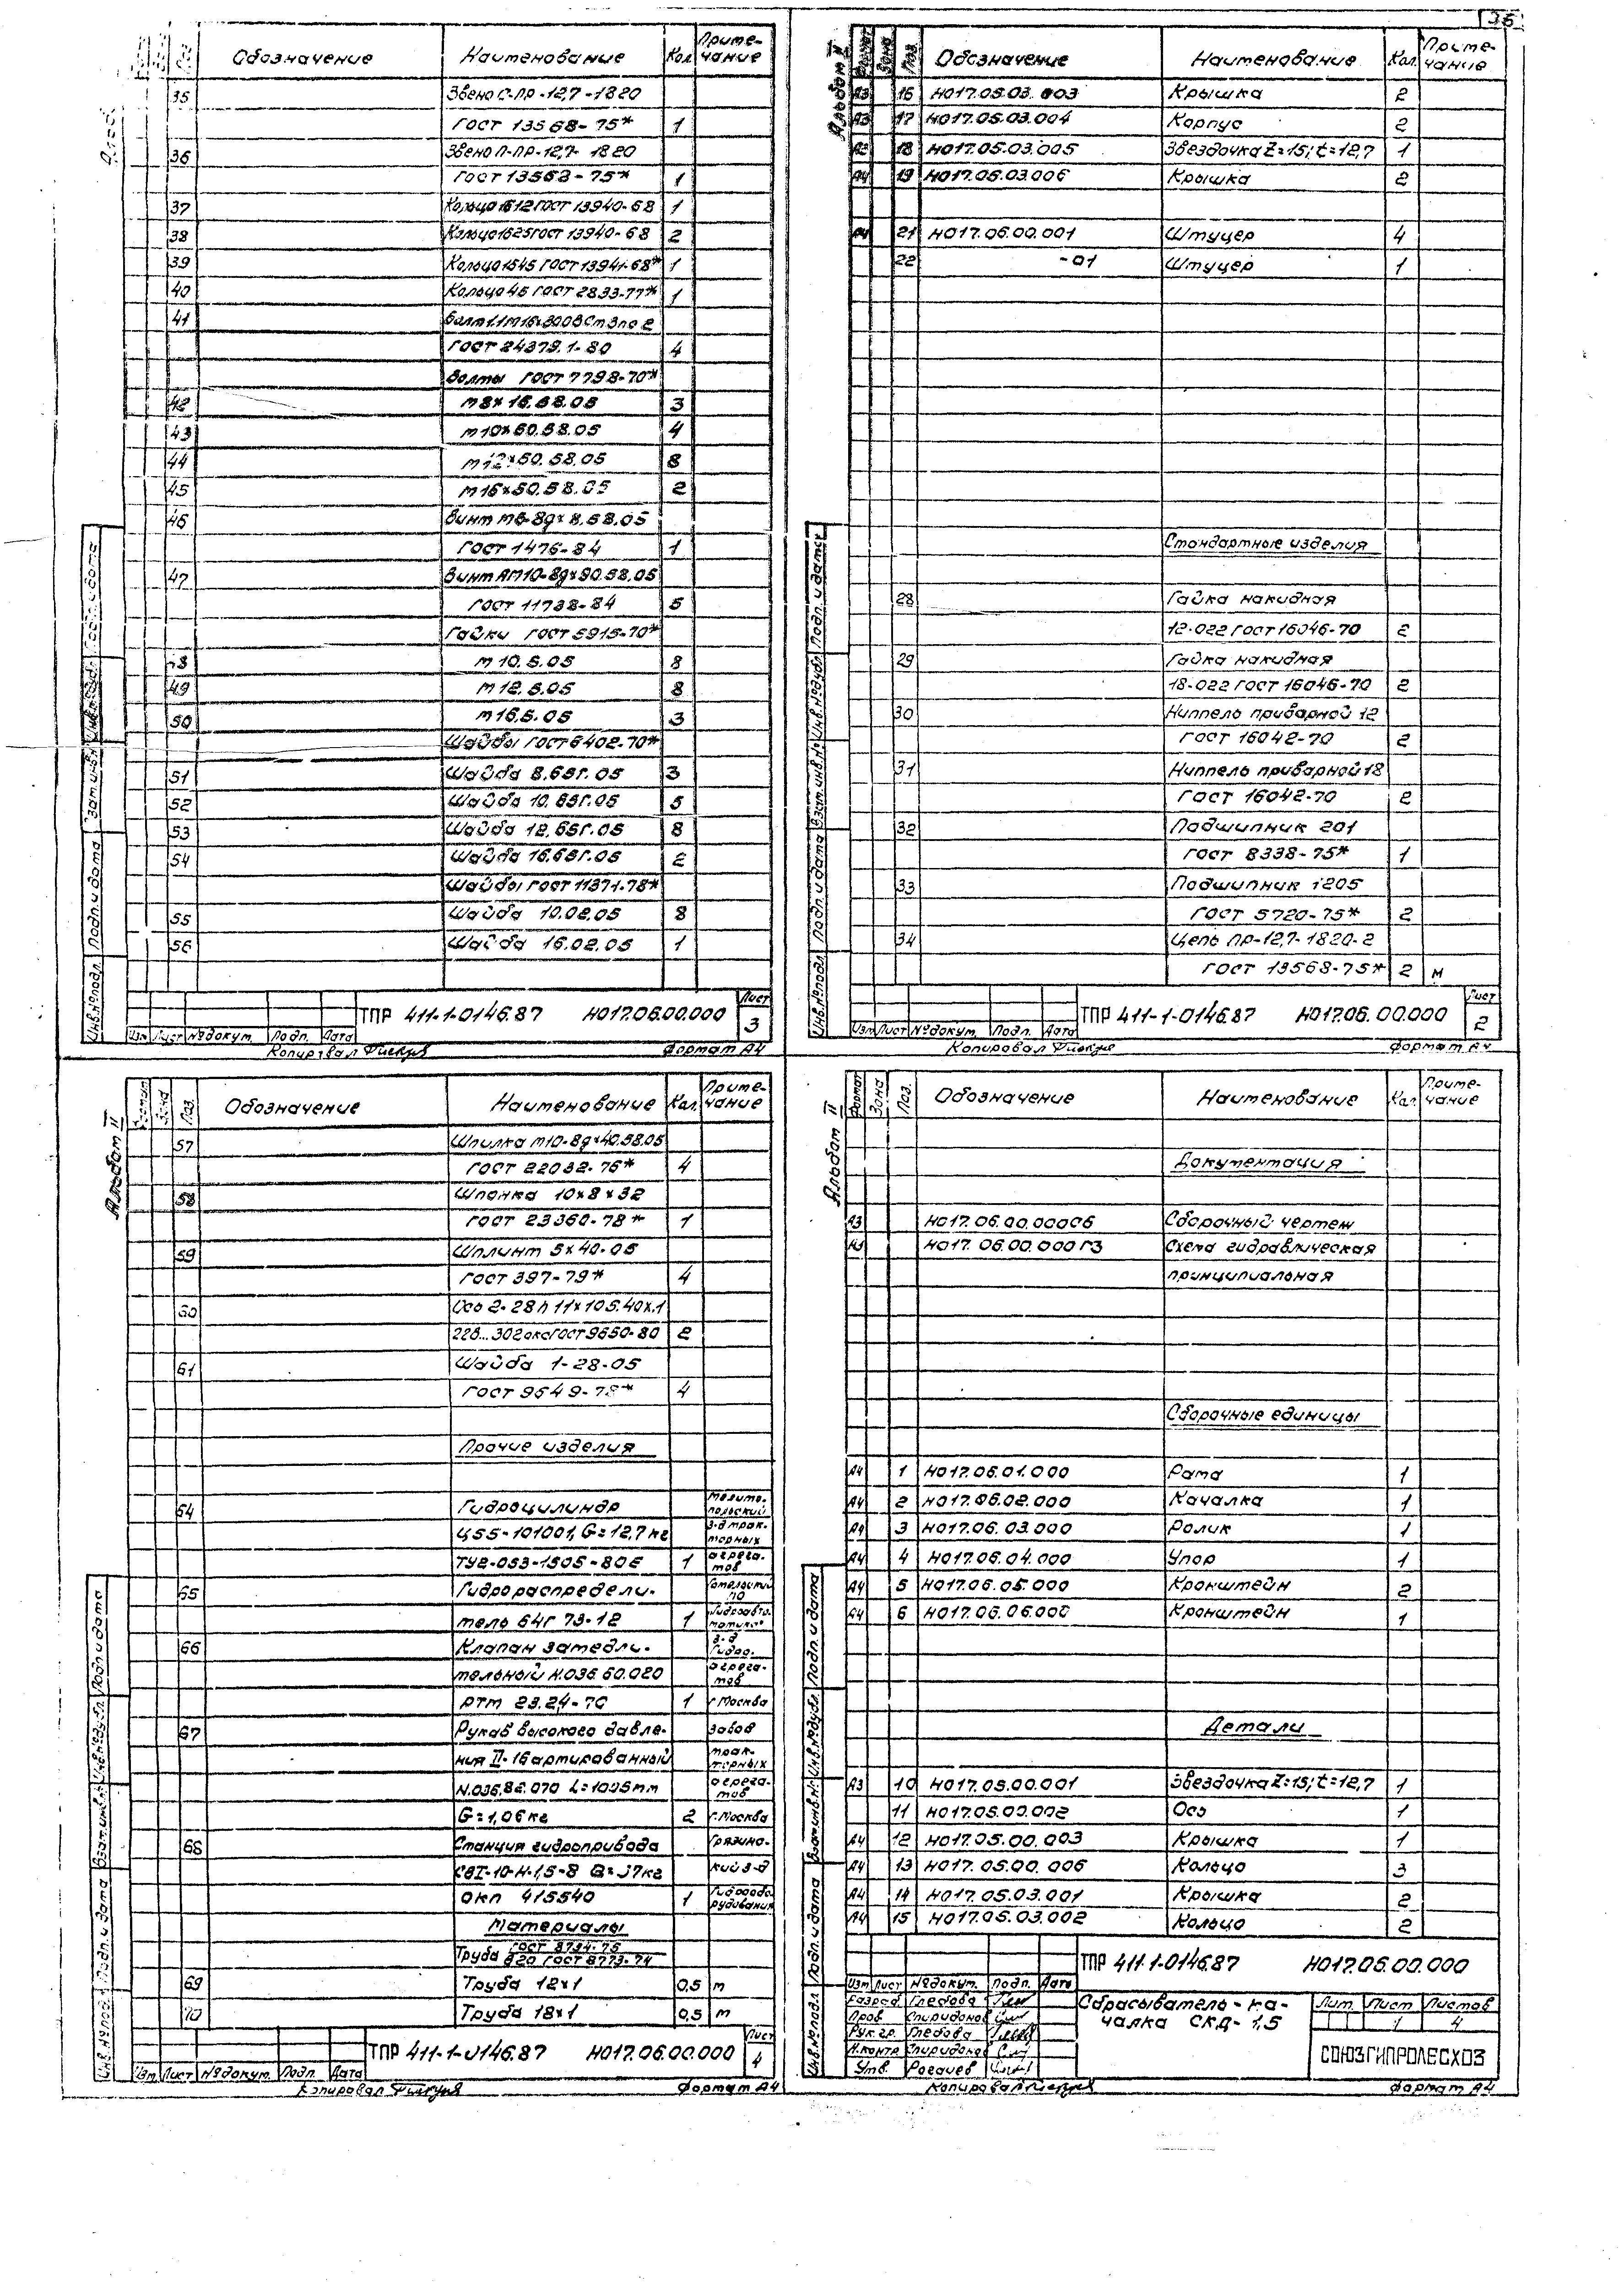 36
Обозначение Наименование Кол. Приме-чание
35 Звено С-ПР-12,7-1820
ГОСТ 13568-75* 1
36 Звено П-ПР-12,7-1820
ГОСТ 13568-75* 1
37 Кольцо 1612 ГОСТ 13940-68 1
38 Кольцо 1625 ГОСТ 13940-68 2
39 Кольцо 1545 ГОСТ 13941-68* 1
40 Кольцо 45 ГОСТ 2833-77* 1
41 Болт 1.1 М16×300 ВСт3пс2
ГОСТ 24379.1-80 4
Болты ГОСТ 7798-70*
42 М8×16.58.05 3
43 М10×60.58.05 4
44 М12×50.58.05 8
45 М16×50.58.05 2
46 Винт М6-8g×8.58.05
ГОСТ 1476-84 1
47 Винт АМ10-8g×90.58.05
ГОСТ 11738-84 5
Гайки ГОСТ 5915-70*
48 М10.5.05 8
49 М12.5.05 8
50 М16.5.05 3
Шайбы ГОСТ 6402-70*
51 Шайба 8.65Г.05 3
52 Шайба 10.65Г.05 5
53 Шайба 12.65Г.05 8
54 Шайба 16.65Г.05 2
Шайбы ГОСТ 11371-78*
55 Шайба 10.02.05 8
56 Шайба 16.02.05 1
ТПР 411-1-0146.87 НО17.06.00.000 Лист 3
Изм Лист № докум. Подп. Дата
Копировал Формат А4
Инв.№подл. Подп. и дата Взам.инв.№ Инв.№дубл. Подп. и дата
Альбом II
Формат Зона Поз. Обозначение Наименование Кол. Приме-чание
А3 16 НО17.05.03.003 Крышка 2
А3 17 НО17.05.03.004 Корпус 2
А3 18 НО17.05.03.005 Звездочка Z=15; t=12,7 1
А4 19 НО17.05.03.006 Крышка 2
А4 21 НО17.06.00.001 Штуцер 4
22 -01 Штуцер 1
Стандартные изделия
28 Гайка накидная
12-022 ГОСТ 16046-70 2
29 Гайка накидная
18-022 ГОСТ 16046-70 2
30 Ниппель приварной 12
ГОСТ 16042-70 2
31 Ниппель приварной 18
ГОСТ 16042-70 2
32 Подшипник 201
ГОСТ 8338-75* 1
33 Подшипник 1205
ГОСТ 5720-75* 2
34 Цепь ПР-12,7-1820-2
ГОСТ 13568-75* 2 м
ТПР 411-1-0146.87 НО17.06.00.000 Лист 2
Изм Лист № докум. Подп. Дата
Копировал Формат А4
Инв.№подл. Подп. и дата Взам.инв.№ Инв.№дубл. Подп. и дата
Альбом II
Формат Зона Поз. Обозначение Наименование Кол. Приме-чание
57 Шпилка М10-8g×40.58.05
ГОСТ 22032-76* 4
58 Шпонка 10×8×32
ГОСТ 23360-78* 1
59 Шплинт 5×40-05
ГОСТ 397-79* 4
60 Ось 2-28h11×105.40Х.1
228...302 окс ГОСТ 9650-80 2
61 Шайба 1-28-05
ГОСТ 9649-78* 4
Прочие изделия
64 Гидроцилиндр Мелито-польский
Ц55-101001, G=12,7 кг з-д трак-торных
ТУ2-053-1505-80Е 1 агрега-тов
65 Гидрораспредели- Гомельский ПО
тель 64Г 73-12 1 Гидроавто-матика
66 Клапан замедли- з-д Гидро-
тельный Н.036.60.020 агрега-тов
РТМ 23.24-70 1 г Москва
67 Рукав высокого давле- завод
ния II-16 армированный трак-торных
Н.036.86.070 L=1095мм агрега-тов
G=1,06 кг 2 г.Москва
68 Станция гидропривода Грязинс-
G=37кг кий з-д
ОКП 415540 1 Гидрообо-рудования
Материалы
Труба ГОСТ 8734-75
В20 ГОСТ 8733-74
69 Труба 12×1 0,5 м
70 Труба 18×1 0,5 м
ТПР 411-1-0146.87 НО17.06.00.000 Лист 4
Изм Лист № докум. Подп. Дата
Копировал Формат А4
Инв.№подл. Подп. и дата Взам.инв.№ Инв.№дубл. Подп. и дата
Альбом II
Формат Зона Поз. Обозначение Наименование Кол. Приме-чание
Документация
А3 НО17.06.00.000СБ Сборочный чертеж
А3 НО17.06.00.000Г3 Схема гидравлическая
принципиальная
Сборочные единицы
А4 1 НО17.06.01.000 Рама 1
А4 2 НО17.06.02.000 Качалка 1
А4 3 НО17.06.03.000 Ролик 1
А4 4 НО17.06.04.000 Упор 1
А4 5 НО17.06.05.000 Кронштейн 2
А4 6 НО17.06.06.000 Кронштейн 1
Детали
А3 10 НО17.05.00.001 Звездочка Z=15; t=12,7 1
11 НО17.05.00.002 Ось 1
А4 12 НО17.05.00.003 Крышка 1
А4 13 НО17.05.00.006 Кольцо 3
А4 14 НО17.05.03.001 Крышка 2
А4 15 НО17.05.03.002 Кольцо 2
ТПР 411-1-0146.87 НО17.06.00.000
Изм Лист № докум. Подп. Дата
Разраб. Глебова
Пров Спиридонов
Рук.гр. Глебова
Н.контр Спиридонов
Утв. Рогачев
Сбрасыватель-ка-
чалка СКД-1,5
Лит. Лист Листов
1 4
СОЮЗГИПРОЛЕСХОЗ
Копировал Формат А4
Инв.№подл. Подп. и дата Взам.инв.№ Инв.№дубл. Подп. и дата